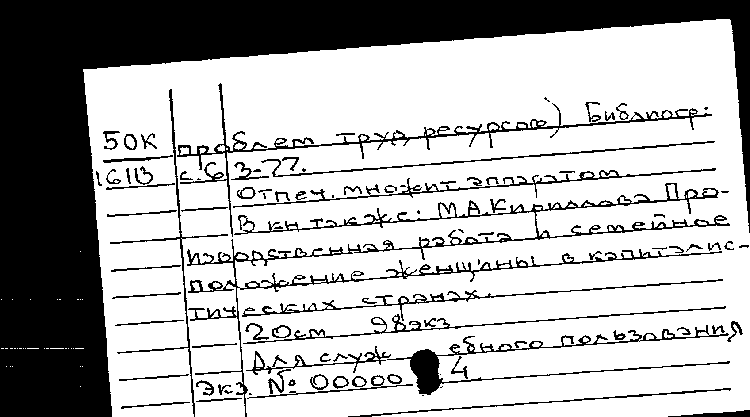 50К проблем труд. ресурсов) Библиогр:
16113 с. 63-77.
Отпеч. множит. аппаратом.
В кн также: М.А.Кириллова Про-
изводственная работа и семейное
положение женщины в капиталис-
тических странах.
20см 98экз.
Для служебного пользования
Экз. № 00000 4